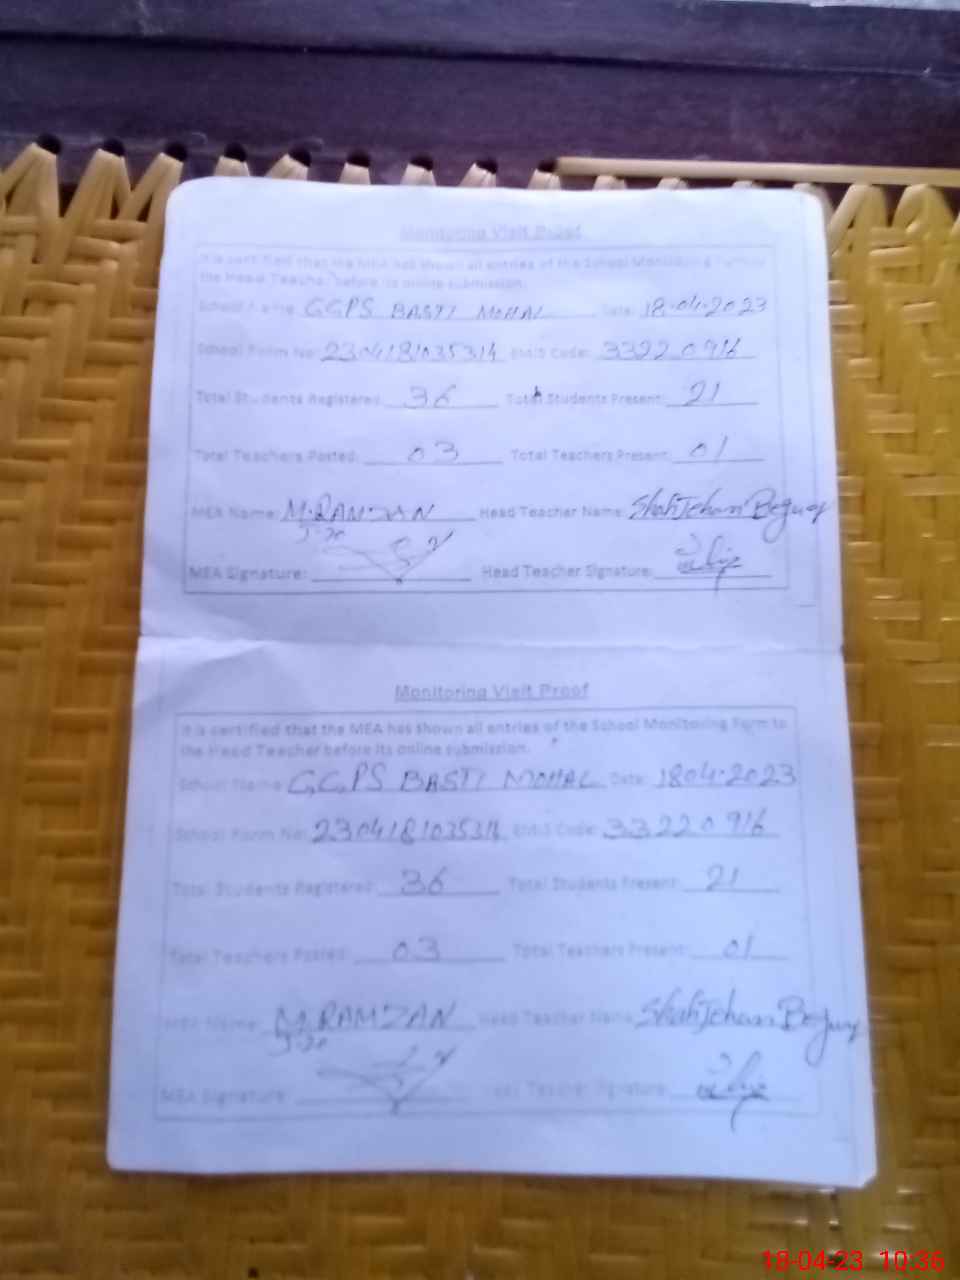 Monitoring Visit Proof
It is certified that the MEA has shown all entries of the School Monitoring Form to
the Head Teacher before its online submission.
School Name: GGPS BASTI MOHAL Date: 18-04-2023
School Form No: 2304181035314 EMIS Code: 33220916
Total Students Registered: 36 Total Students Present: 21
Total Teachers Posted: 03 Total Teachers Present: 01
MEA Name: M.RAMZAN Head Teacher Name: ShahJehan Begum
MEA Signature: Head Teacher Signature:
Monitoring Visit Proof
It is certified that the MEA has shown all entries of the School Monitoring Form to
the Head Teacher before its online submission.
School Name: GGPS BASTI MOHAL Date: 1804-2023
School Form No: 2304181035314 EMIS Code: 33220916
Total Students Registered: 36 Total Students Present: 21
Total Teachers Posted: 03 Total Teachers Present: 01
MEA Name: M.RAMZAN Head Teacher Name: ShahJehan Begum
MEA Signature: Head Teacher Signature:
18-04-23 10:36